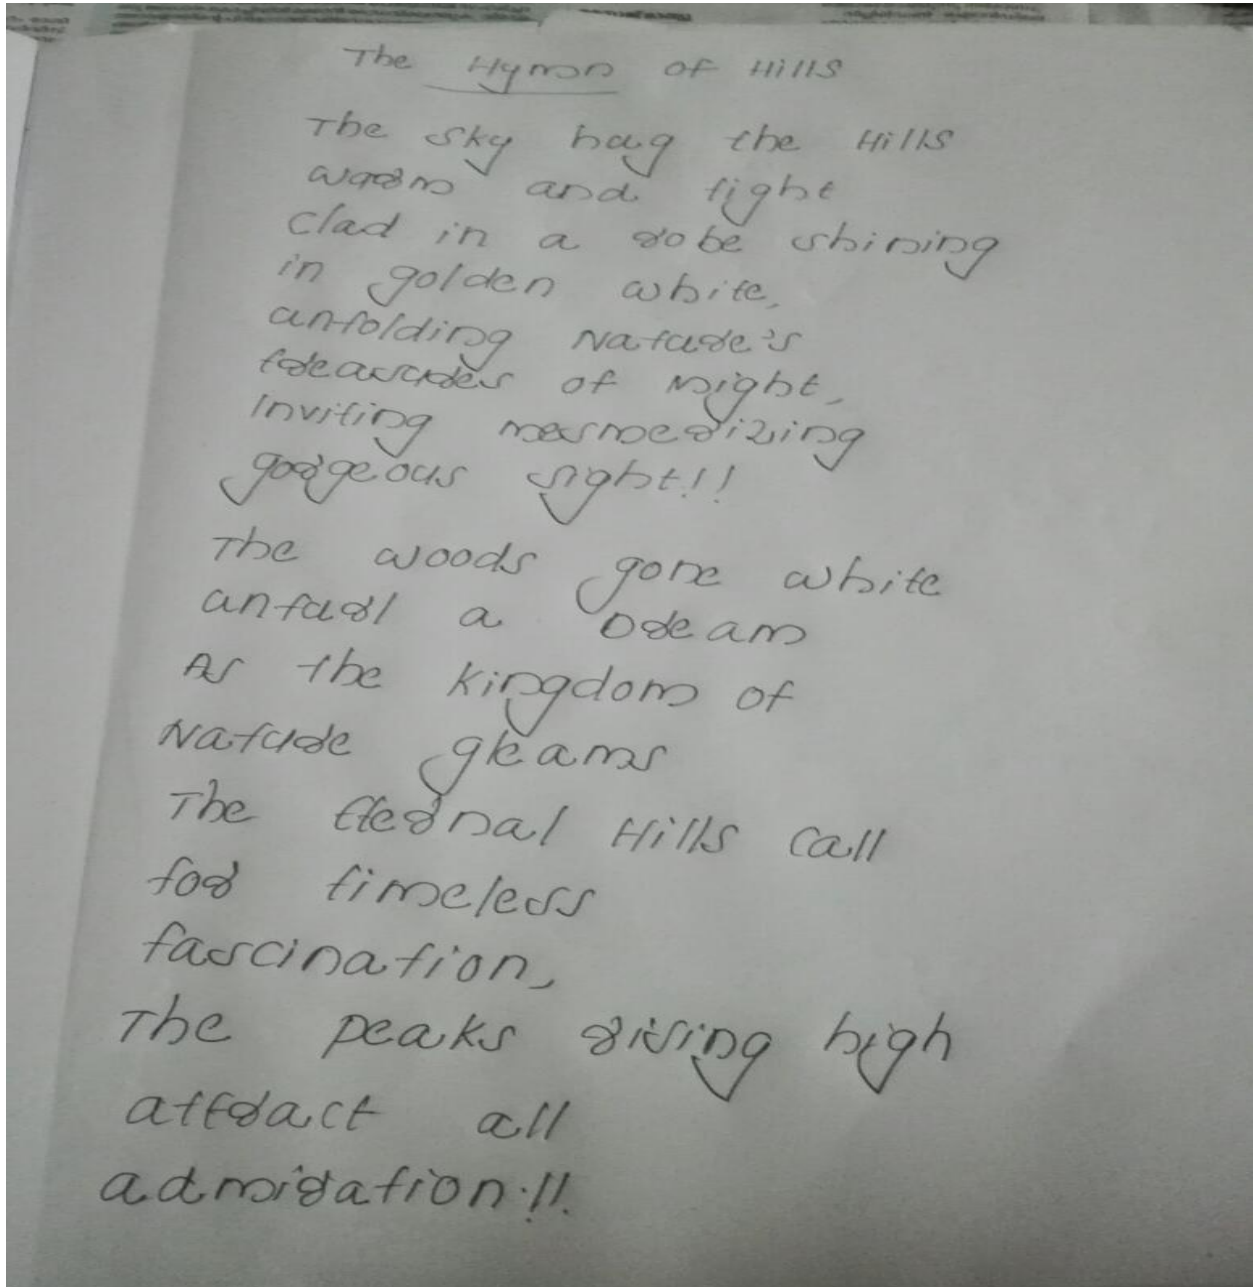 The Hymn of Hills
The sky hug the Hills
warm and tight
Clad in a robe shining
in golden white,
unfolding Nature's
treasures of might,
Inviting mesmerizing
gorgeous sight!!
The woods gone white
unfurl a Dream
As the kingdom of
Nature gleams
The Eternal Hills call
for timeless
fascination,
The peaks rising high
attract all
admiration.!!